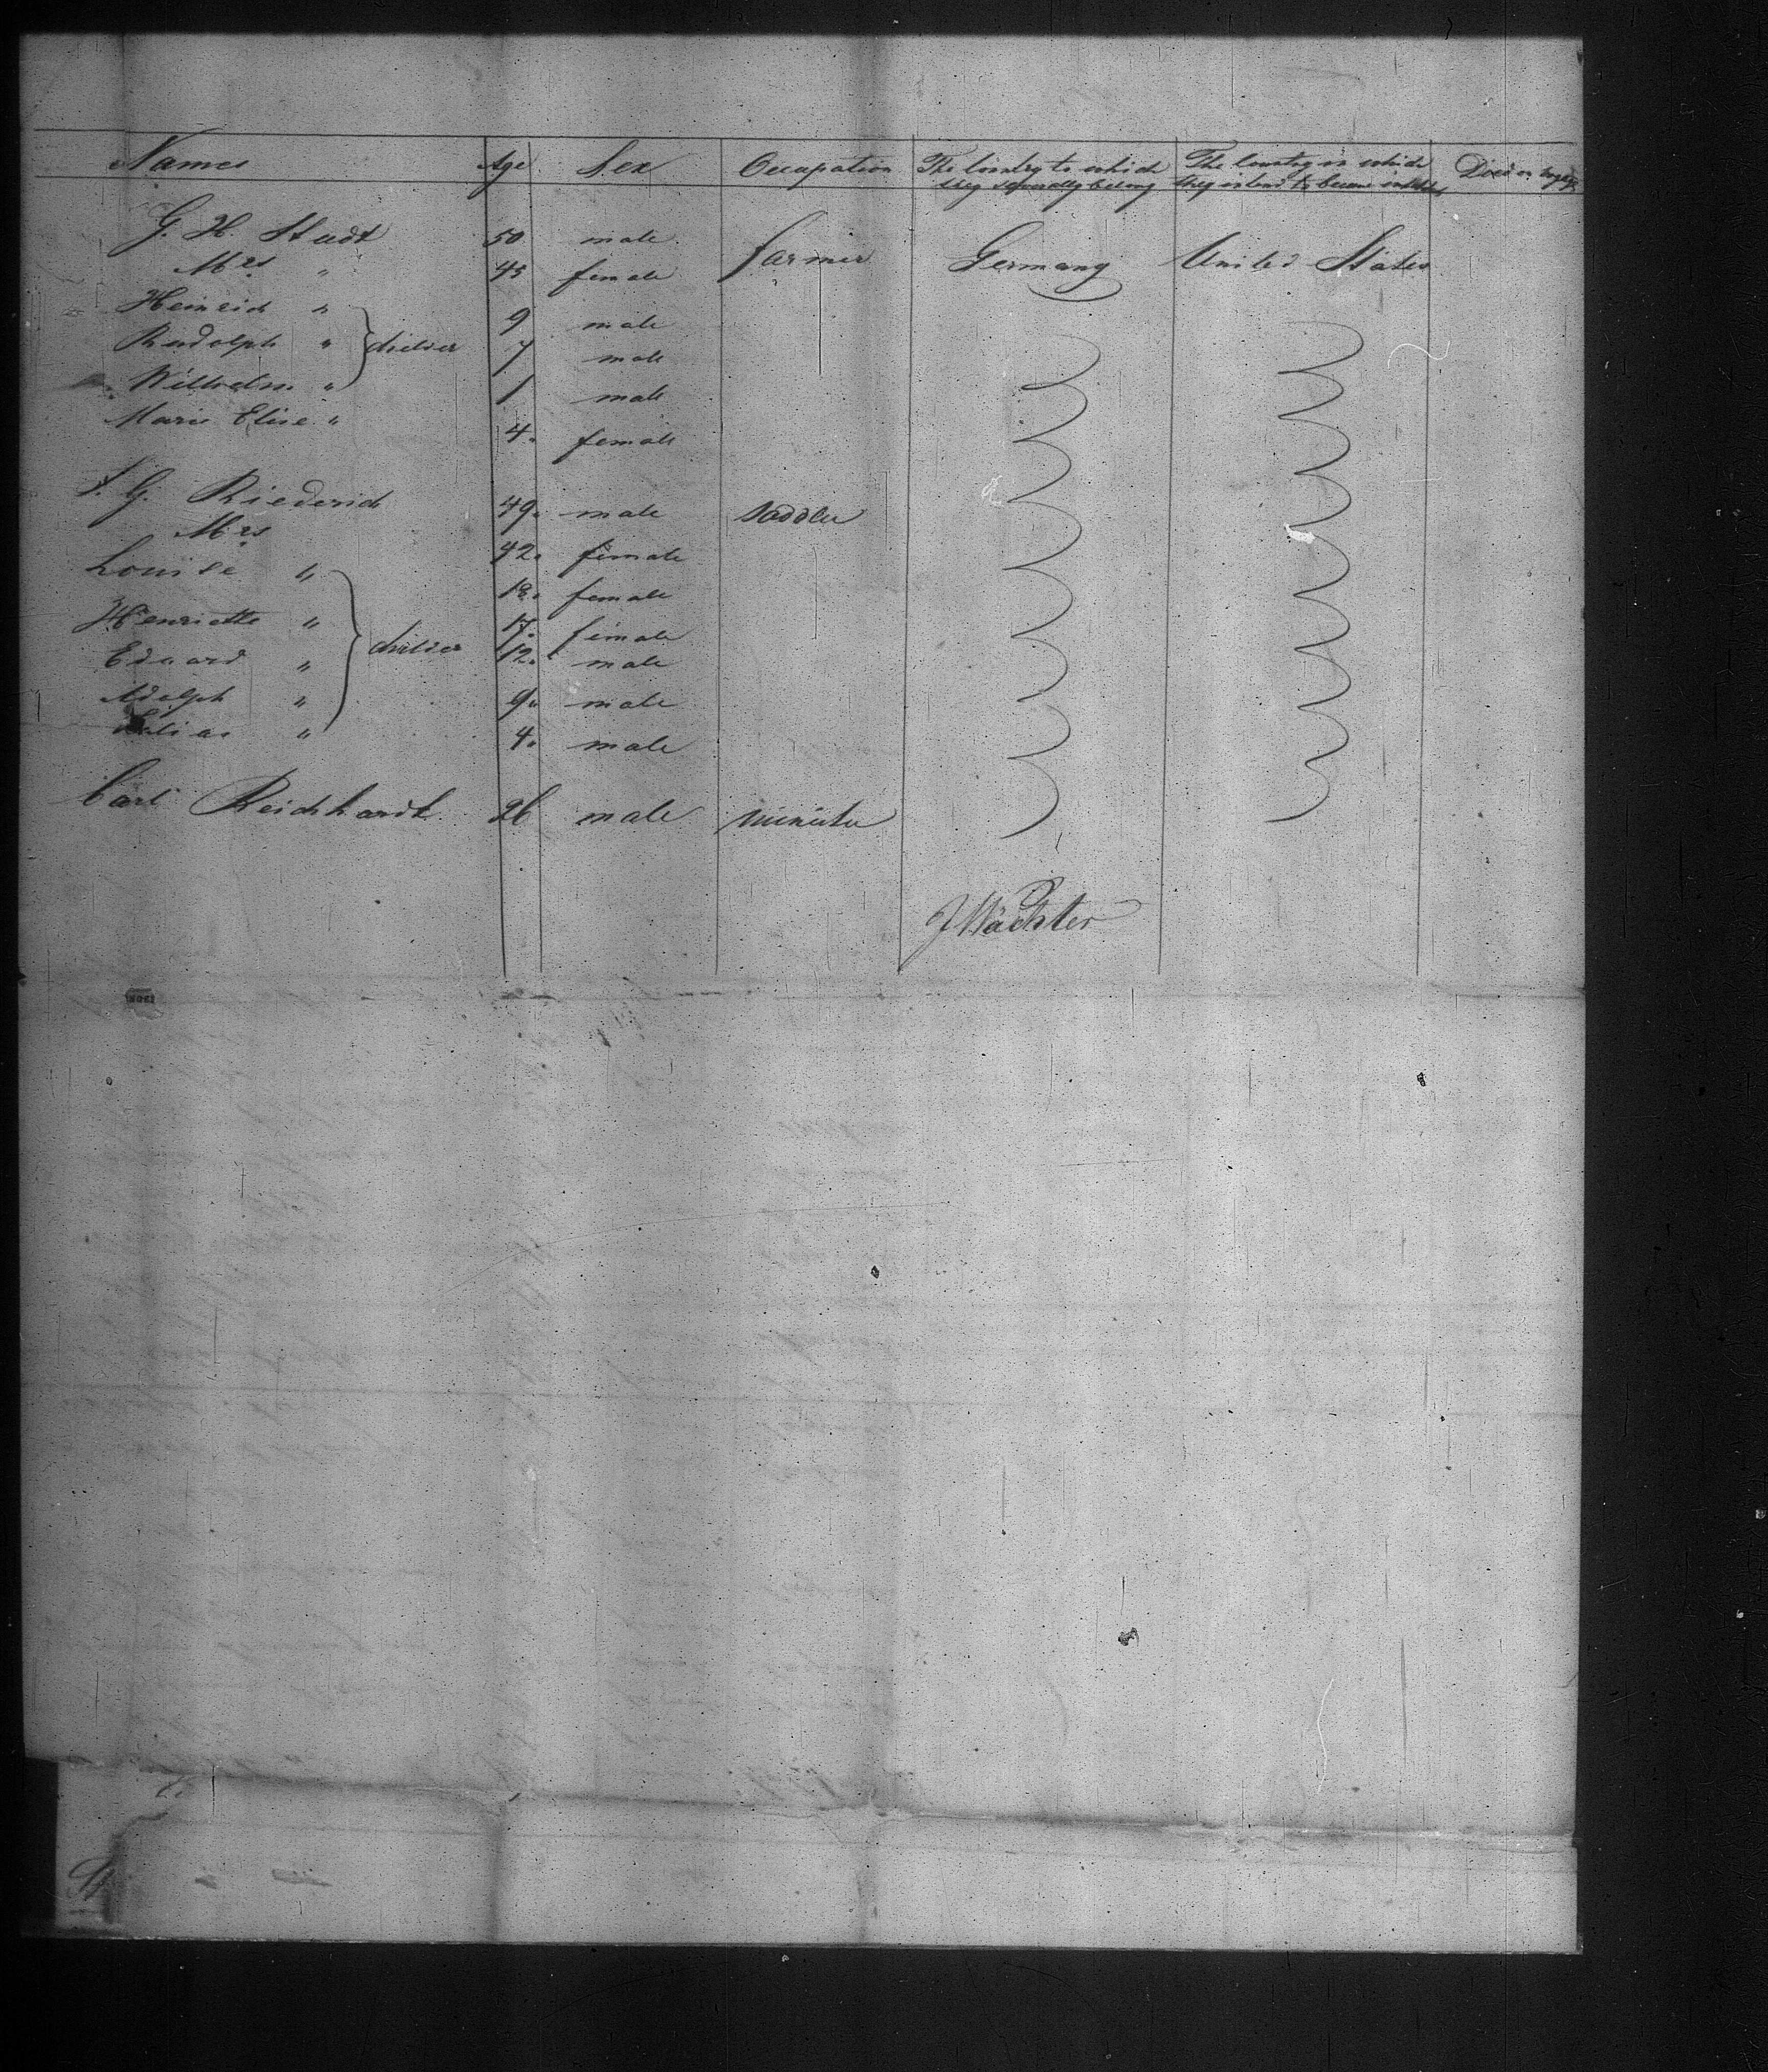 Names Age Sex Occupation The Country to which they severally belong The Country in which they intend to become inhabit Died on
G. H. Studt 50 male farmer Germany United States
Mrs " 45 female
Heinrich " 9 male
Rudolph " childer 7 male
Wilhelm " 1 male
Marie Elise " 4. female
G. Riederich 49. male saddler
Mrs 42. female
Louise " 18. female
Henriette " 17. female
Eduard " childer 12. male
Adolph " 9. male
" 4. male
Carl Reichhardt 26 male minister
J Wächter